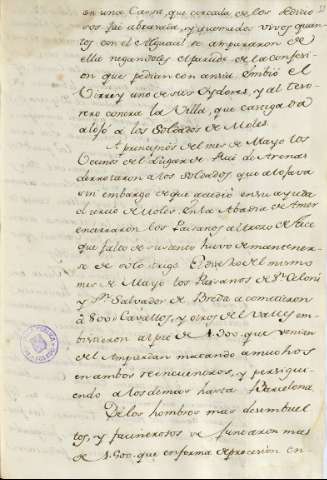 en una Cassa, que cercada de los sedicio
sos fué abrazada, y quemados vivos quan
tos con el Alguacil se ampararon de
ella negandoles el partido de la confesion
que pedian con ansia. embió el
Virrey uno de sus Oydores, y al ter
cero contra la Villa, que castigava
aloxo a los Soldados de Moles.
A principios del mes de Mayo los
Vecinos del Lugar de Rui de Arenas
derrotaron a los soldados que aloxava
sin embargo de que acudió en su ayuda
el tercio de Moles. En la Abadia de Amer
encerraron los Paisanos al trozo de
que falto de sustento huvo de mantener
se de solo trigo. El dia 20 del mismo
mes de Mayo los Paisanos de Sn. Celoni
y Sn. Salvador de Breda acometieron
a 800 Cavallos, y otros del Vallés em
bistieron al pie de 1.300 que venian
del Ampurdan matando a muchos
en ambos reencuentros, y persigui
endo a los demas hasta Barcelona.
De los hombres mas desembuel
tos, y facinerosos se juntaron mas
de 1.500. que en forma de procesion en-